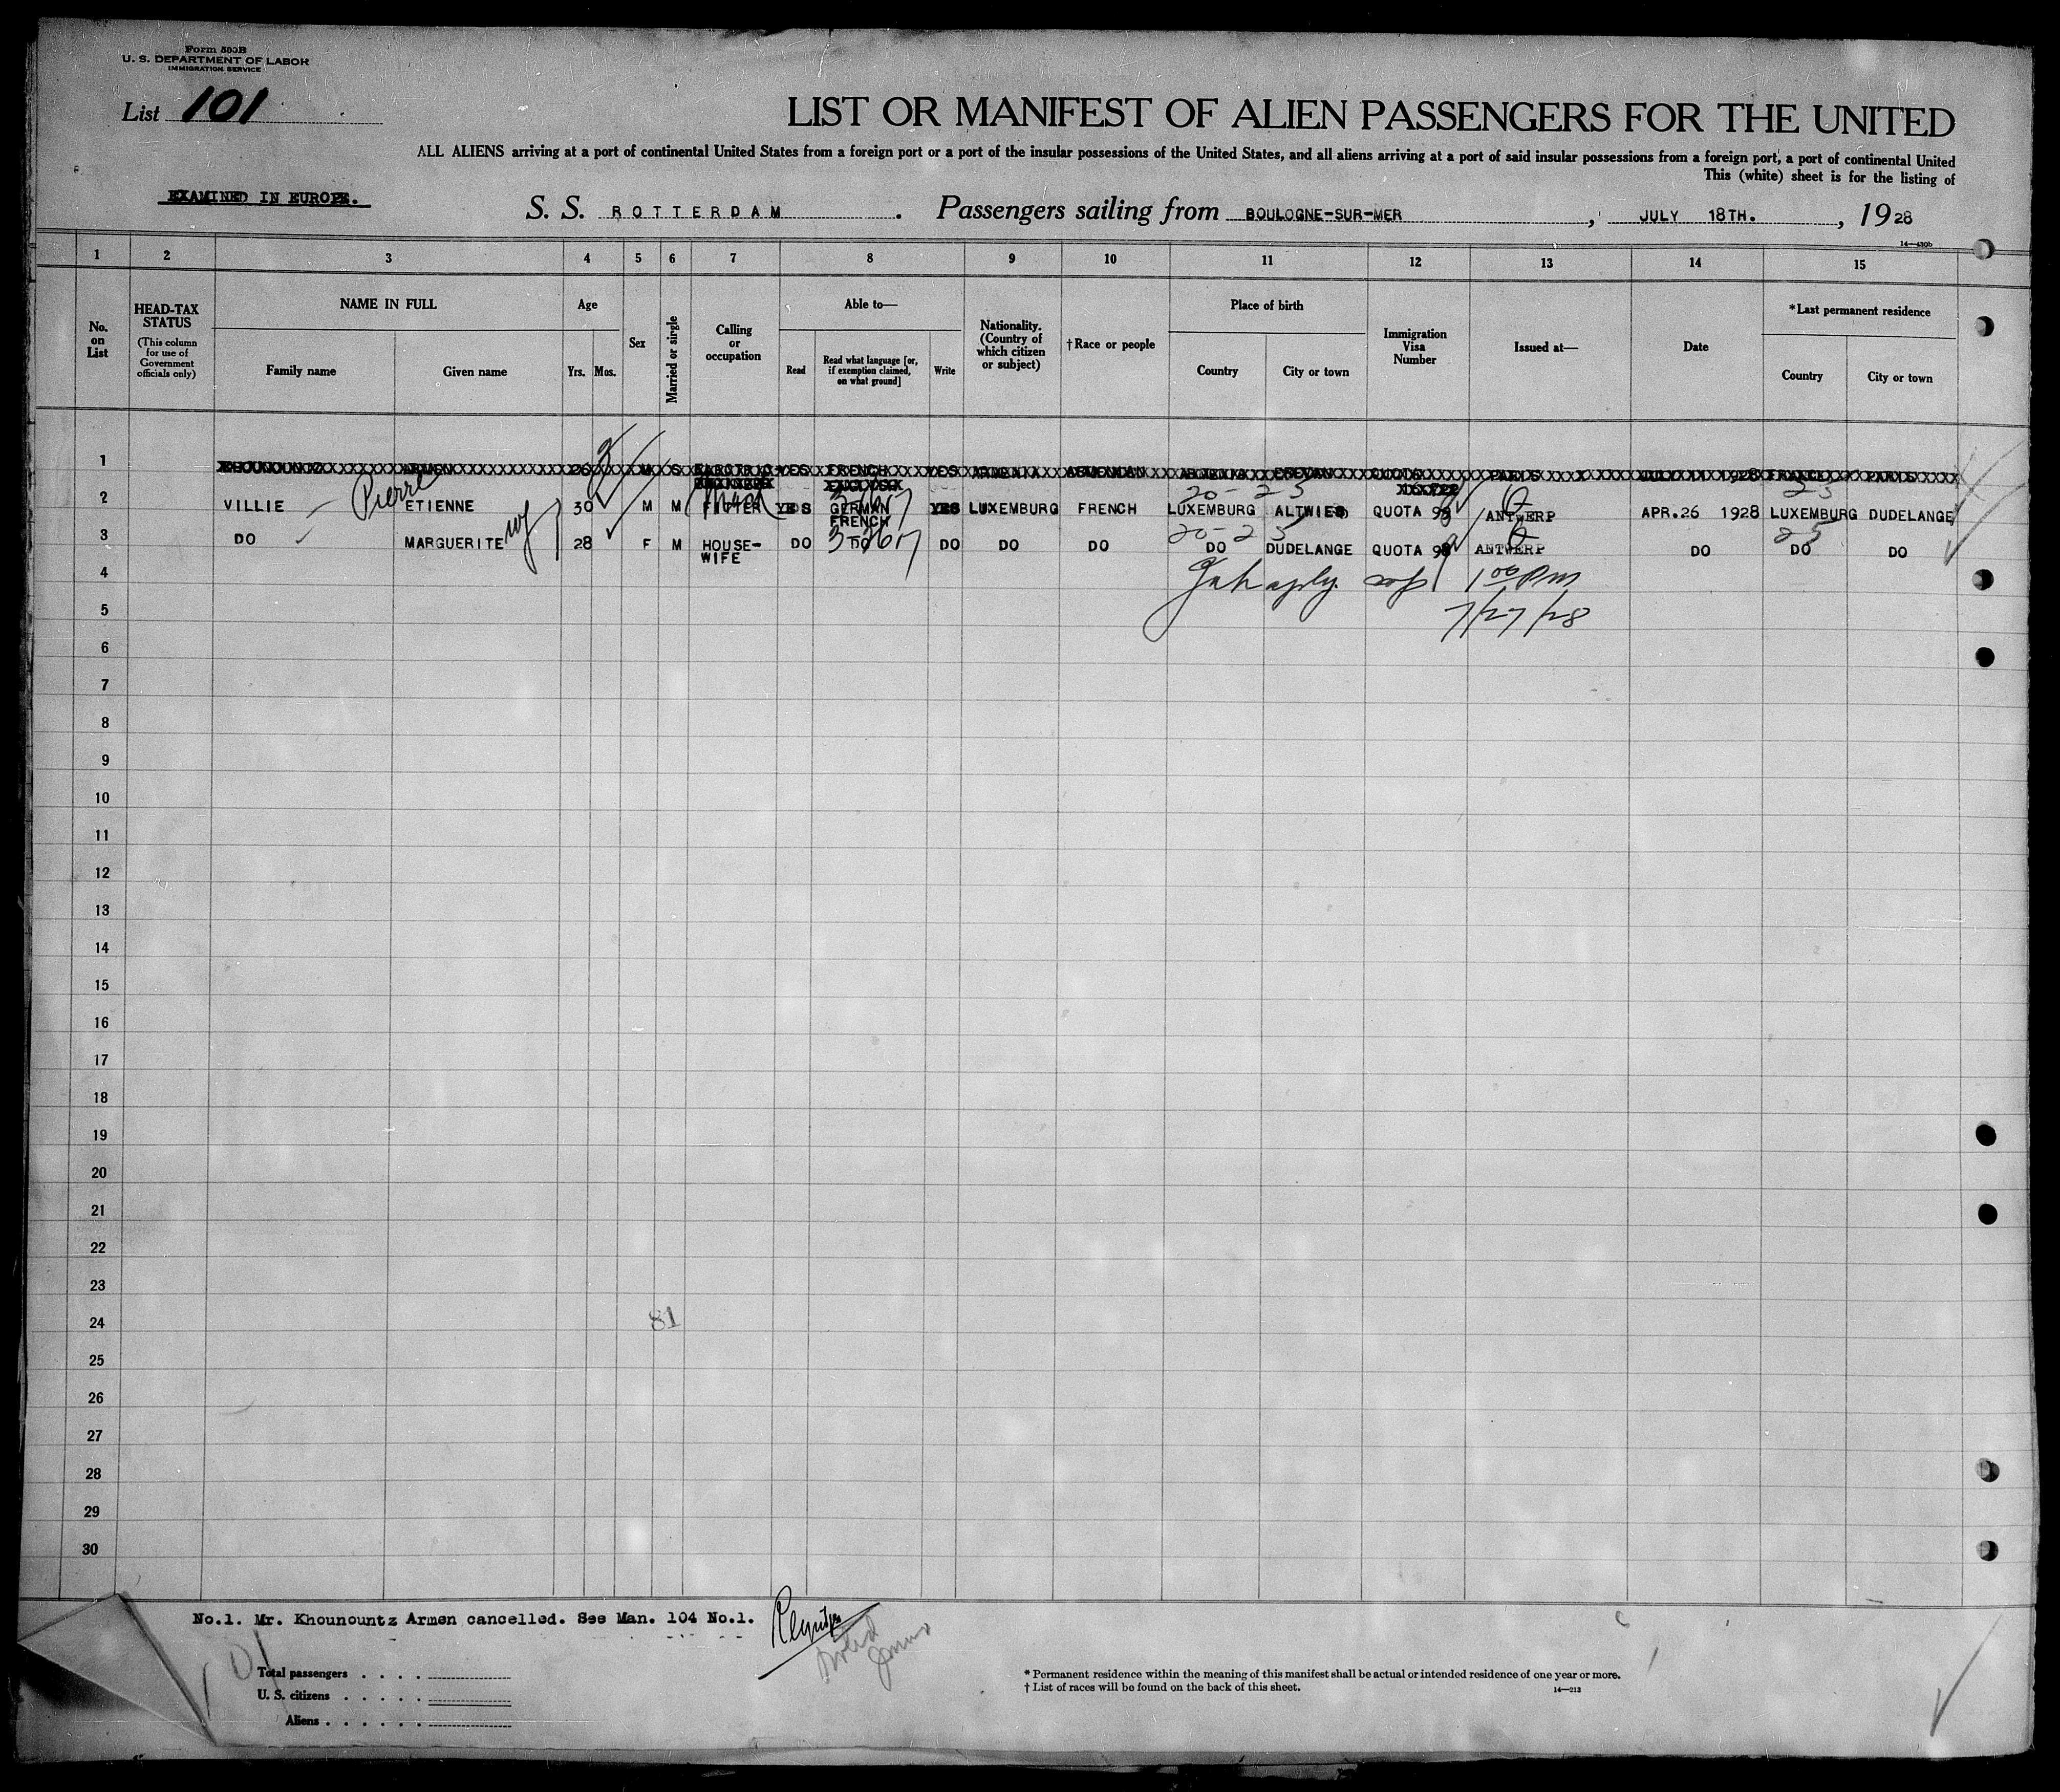 Form 500B
U. S. DEPARTMENT OF LABOR
IMMIGRATION SERVICE
List 101
LIST OR MANIFEST OF ALIEN PASSENGERS FOR THE UNITED
ALL ALIENS arriving at a port of continental United States from a foreign port or a port of the insular possessions of the United States, and all aliens arriving at a port of said insular possessions from a foreign port, a port of continental United
This (white) sheet is for the listing of
EXAMINED IN EUROPE.
S. S. ROTTERDAM. Passengers sailing from BOULOGNE-SUR-MER, JULY 18TH., 1928
14—430b
1 2 3 4 5 6 7 8 9 10 11 12 13 14 15
No. on List
HEAD-TAX STATUS
(This column for use of Government officials only)
NAME IN FULL
Family name
Given name
Age
Yrs. Mos.
Sex
Married or single
Calling or occupation
Able to—
Read
Read what language [or, if exemption claimed, on what ground]
Write
Nationality. (Country of which citizen or subject)
†Race or people
Place of birth
Country
City or town
Immigration Visa Number
Issued at—
Date
*Last permanent residence
Country
City or town
1 ARMEN 26 M S ELECTRIC YES FRENCH YES ARMENIAN EREVAN QUOTA PARIS JULY 1928 FRANCE PARIS
Pierre
20-25
2 VILLIE ETIENNE 30 M M FITTER YES GERMAN FRENCH YES LUXEMBURG FRENCH LUXEMBURG ALTWIES QUOTA 98 ANTWERP APR.26 1928 LUXEMBURG DUDELANGE
20-25
3 DO MARGUERITE wf 28 F M HOUSE-WIFE DO DO DO DO DO DO DUDELANGE QUOTA 98 ANTWERP DO DO DO
4
1 00 PM
5
7/27/28
6
7
8
9
10
11
12
13
14
15
16
17
18
19
20
21
22
23
24
81
25
26
27
28
29
30
No.1. Mr. Khounountz Armen cancelled. See Man. 104 No.1.
Total passengers
U. S. citizens
Aliens
* Permanent residence within the meaning of this manifest shall be actual or intended residence of one year or more.
† List of races will be found on the back of this sheet.
14—213